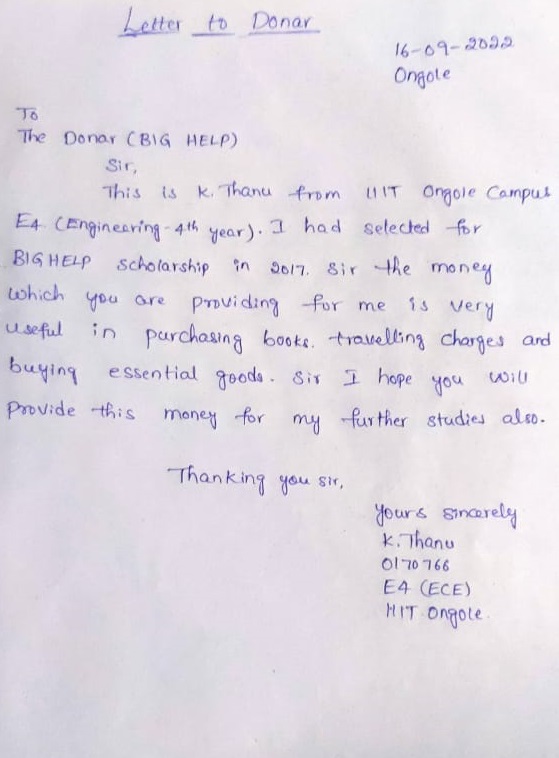 Letter to Donar
16-09-2022
Ongole
To
The Donar (BIG HELP)
Sir,
This is K. Thanu from IIIT Ongole Campus
E4 (Engineering - 4th year). I had selected for
BIG HELP scholarship in 2017. Sir the money
which you are providing for me is very
useful in purchasing books, travelling charges and
buying essential goods. Sir I hope you will
provide this money for my further studies also.
Thanking you sir,
yours sincerely
K. Thanu
O170766
E4 (ECE)
IIIT Ongole.